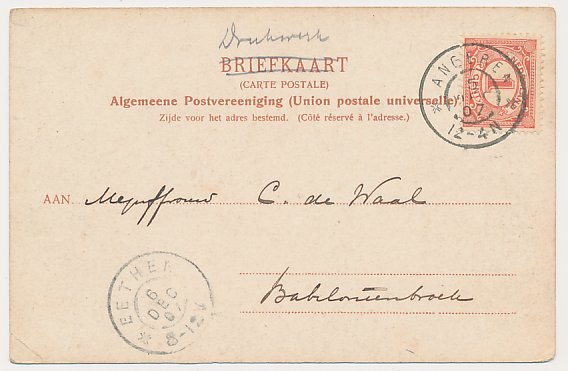 Drukwerk
BRIEFKAART
(CARTE POSTALE)
Algemeene Postvereeniging (Union postale universelle)
Zijde voor het adres bestemd. (Côté réservé à l'adresse.)
ANGEREN
07
12-4N
1
CENT
AAN. Mejuffrouw C. de Waal
Babilonienbroek
EETHEN
06
DEC
8-12